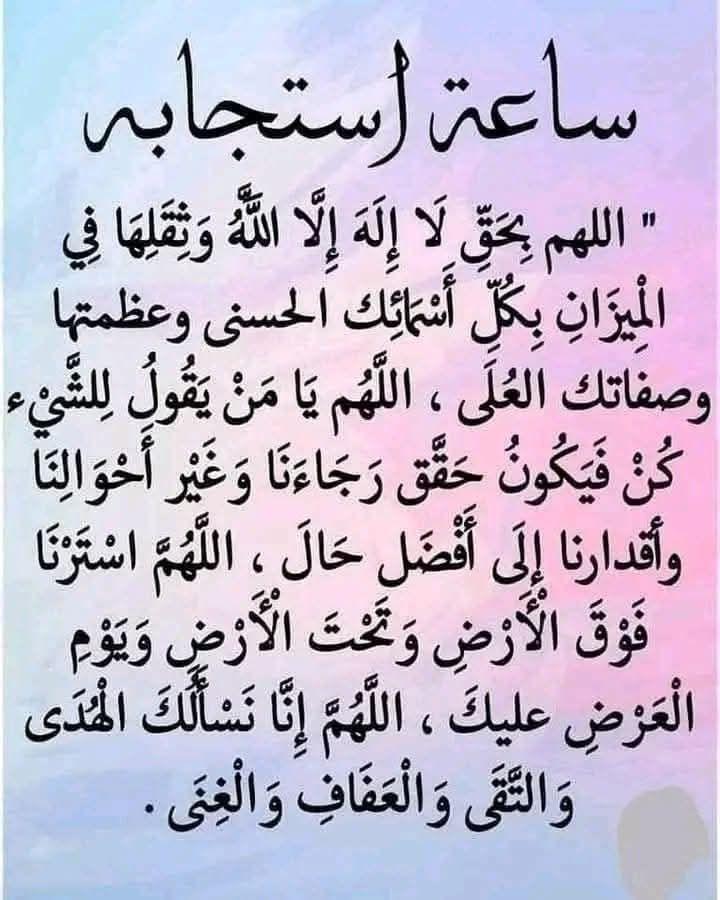 ساعة إستجابه
" اللهم بِحَقِّ لَا إِلَهَ إِلَّا اللَّهُ وَثِقَلِهَا فِي
الْمِيزَانِ بِكُلِّ أَسْمَائِك الحسنى وعظمتها
وصفاتك العُلَى ، اللَّهُم يَا مَنْ يَقُولُ لِلشَّيْء
كُنْ فَيَكُونُ حَقَّق رَجَاءَنَا وَغَيْر أَحْوَالِنَا
وأقدارنا إِلَى أَفْضَل حَالَ ، اللَّهُمَّ اسْتَرْنَا
فَوْقَ الْأَرْضِ وَتَحْتَ الْأَرْضِ وَيَوْمِ
الْعَرْضِ عليكَ ، اللَّهُمَّ إِنَّا نَسْأَلُكَ الْهُدَى
وَالتَّقَى وَالْعَفَافِ وَالْغِنَى .